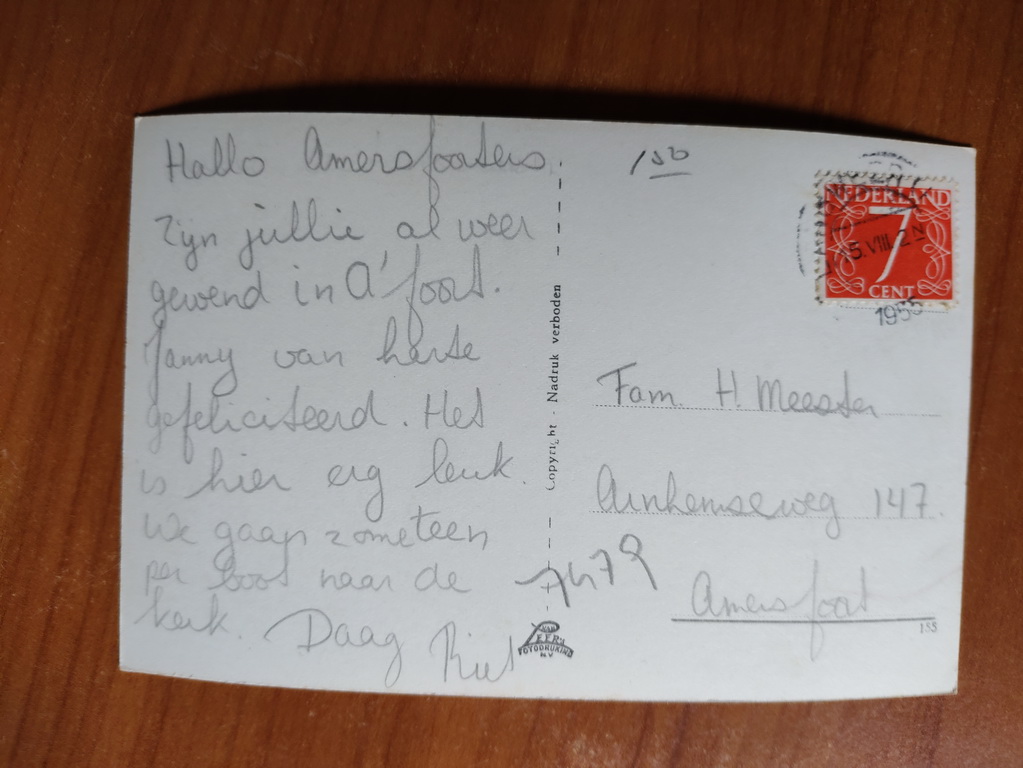 Hallo Amersfoorters.
Zijn jullie al weer
gewend in A'foort.
Janny van harte
gefeliciteerd. Het
is hier erg leuk.
We gaan zometeen
per boot naar de
kerk. Daag Riet
Copyright - Nadruk verboden
VAN LEER'S
FOTODRUKIND.
N.V.
150
NEDERLAND
7
CENT
5.VIII.2N
1955
Fam H. Meester
Arnhemseweg 147.
Amersfoort
7479
155